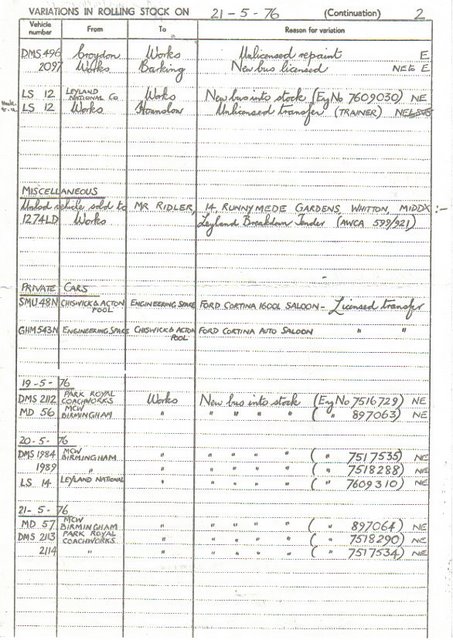 VARIATIONS IN ROLLING STOCK ON 21-5-76 (Continuation) 2
Vehicle number From To Reason for variation
DMS 496 Croydon Works Unlicensed repaint E
2097 Works Barking New bus licensed NE E
LS 12 LEYLAND NATIONAL Co Works New bus into stock (Eng No 7609030) NE
LS 12 Works Hounslow Unlicensed transfer (TRAINER)
MISCELLANEOUS
vehicle sold to MR RIDLER, 14, RUNNYMEDE GARDENS, WHITTON, MIDDX :-
1274LD Works Leyland Breakdown Tender (AWCA 599/921)
PRIVATE CARS
SMU 48N CHISWICK & ACTON POOL ENGINEERING SPARE FORD CORTINA 1600L SALOON - Licensed transfer
GHM 543N ENGINEERING SPARE CHISWICK & ACTON POOL FORD CORTINA AUTO SALOON " "
19-5-76
DMS 2112 PARK ROYAL COACHWORKS Works New bus into stock (Eng No 7516729) NE
MD 56 MCW BIRMINGHAM " " " " " ( " 897063) NE
20-5-76
DMS 1984 MCW BIRMINGHAM " " " " " ( " 7517535) NE
1989 " " " " " " ( " 7518288) NE
LS 14 LEYLAND NATIONAL " " " " " ( " 7609310) NE
21-5-76
MD 57 MCW BIRMINGHAM " " " " " ( " 897064) NE
DMS 2113 PARK ROYAL COACHWORKS " " " " " ( " 7518290) NE
2114 " " " " " " ( " 7517534) NE